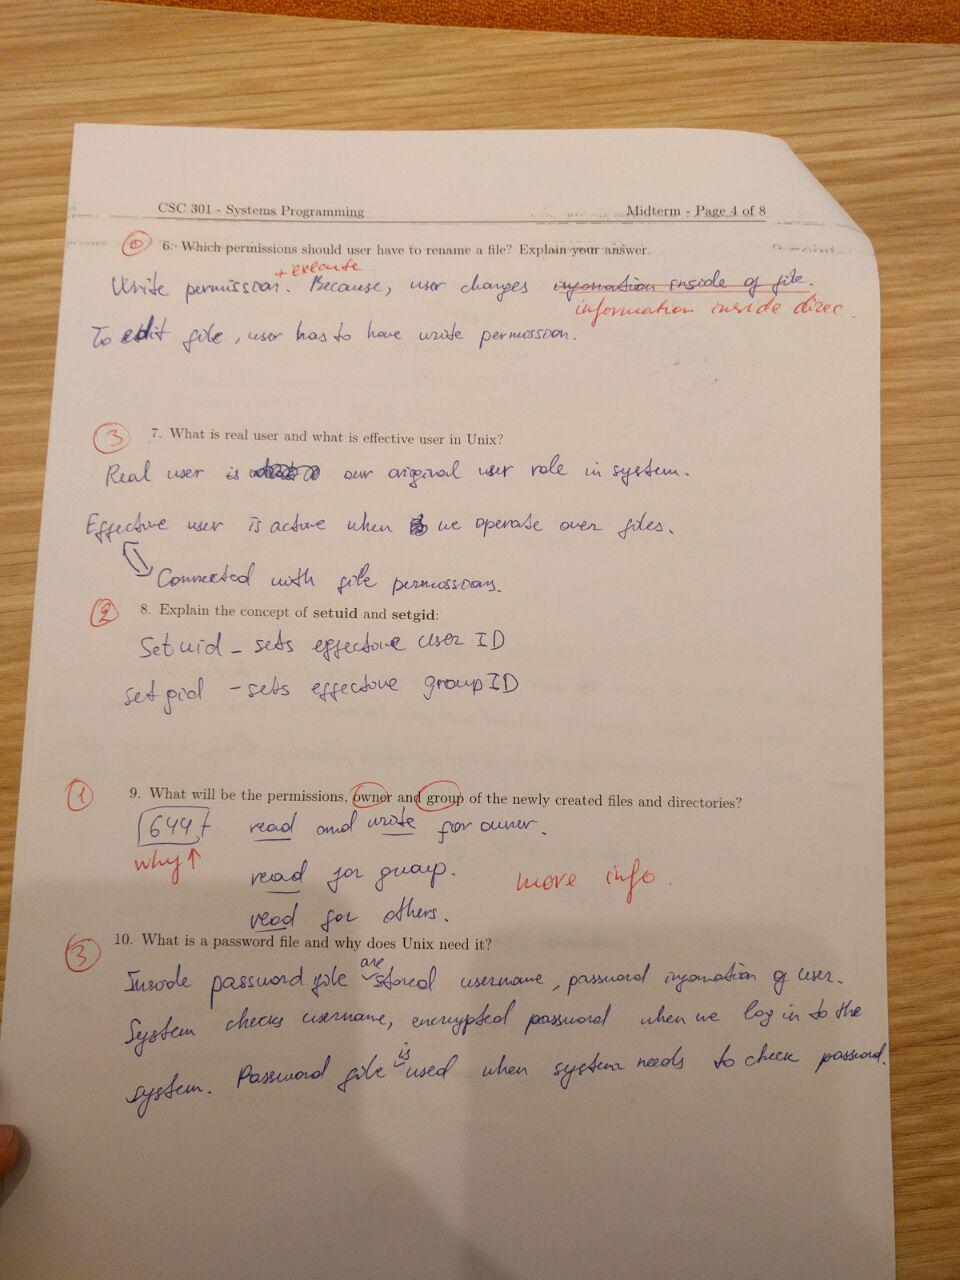 CSC 301 - Systems Programming Midterm - Page 4 of 8
0 6. Which permissions should user have to rename a file? Explain your answer.
+ execute
Write permission. Because, user changes infomation inside of file.
information inside direc.
To edit file, user has to have write permission.
3 7. What is real user and what is effective user in Unix?
Real user is our original user role in system.
Effective user is active when we operate over files.
Connected with file permissions.
2 8. Explain the concept of setuid and setgid:
Setuid - sets effective user ID
setgid - sets effective group ID
1 9. What will be the permissions, owner and group of the newly created files and directories?
644 read and write for owner.
why↑ read for group. more info.
read for others.
3 10. What is a password file and why does Unix need it?
Inside password file are stored username, password infomation of user.
System checks username, encrypted password when we log in to the
system. Password file is used when system needs to check password.